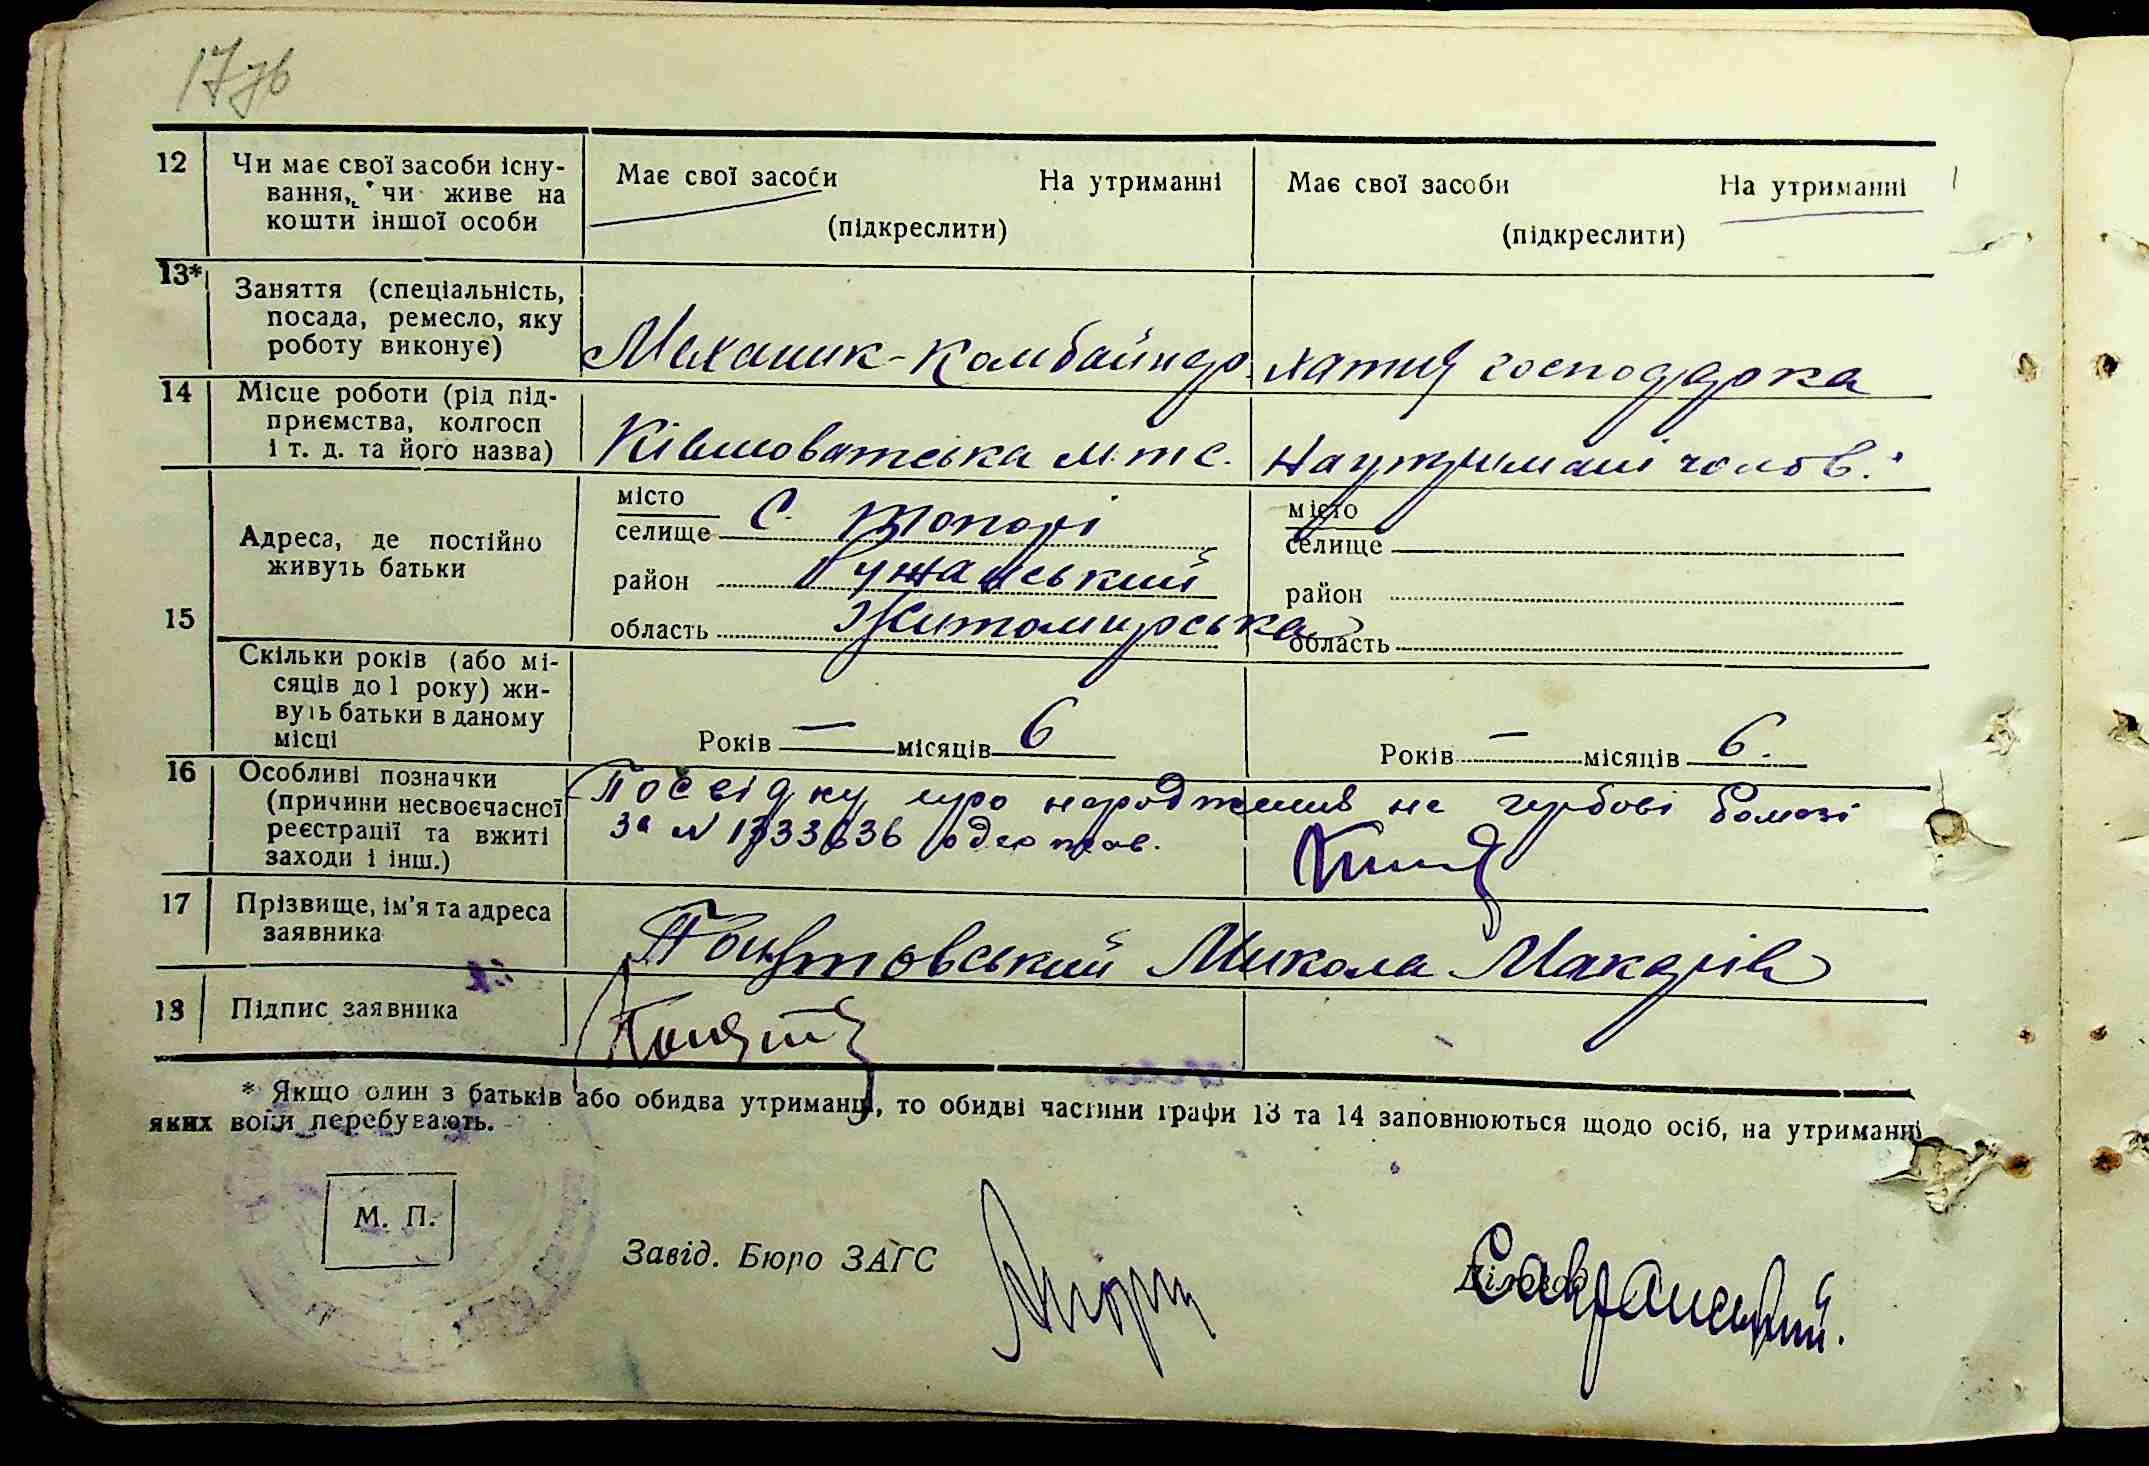 17зв
12 Чи має свої засоби існу-
вання, чи живе на
кошти іншої особи
Має свої засоби На утриманні
(підкреслити)
Має свої засоби На утриманні
(підкреслити)
13* Заняття (спеціальність,
посада, ремесло, яку
роботу виконує)
Механик-комбайнер
хатня господарка
14 Місце роботи (рід під-
приємства, колгосп
і т. д. та його назва)
м.т.с.
На утримані чолов.
15
Адреса, де постійно
живуть батьки
місто
селище с. Топорі
район Ружинський
область Житомирська
місто
селище
район
область
Скільки років (або мі-
сяців до 1 року) жи-
вуть батьки в даному
місці
Років — місяців 6
Років — місяців 6.
16 Особливі позначки
(причини несвоєчасної
реєстрації та вжиті
заходи і інш.)
Посвідку про народження на гербові бомазі
за № 1733636 одержав.
17 Прізвище, ім'я та адреса
заявника
Микола Макарів
18 Підпис заявника
* Якщо один з батьків або обидва утриманці, то обидві частини графи 13 та 14 заповнюються щодо осіб, на утриманні
яких вони перебувають.
М. П.
Завід. Бюро ЗАГС
Діловод
Савранський.